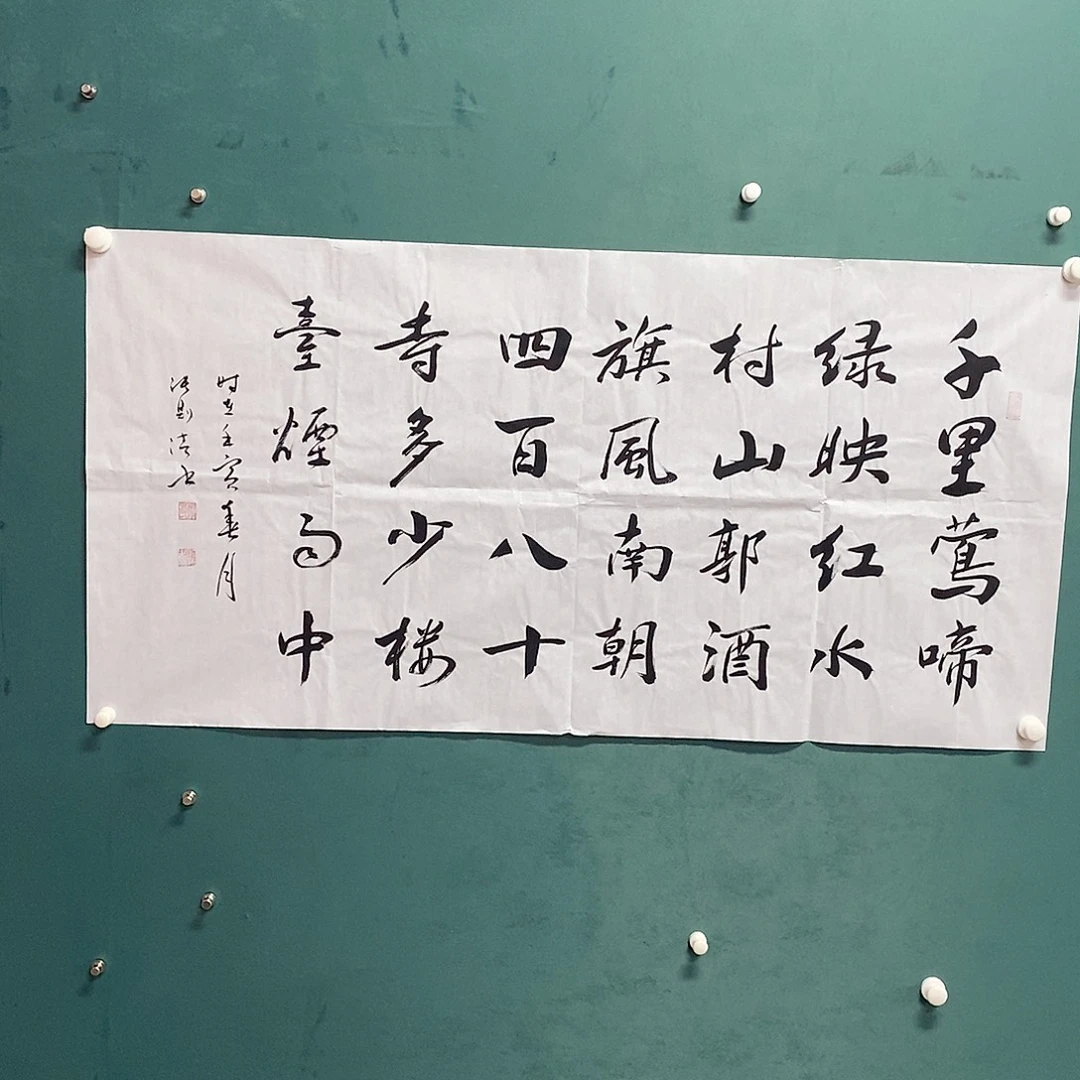 千里莺啼
绿映红水
村山郭酒
旗風南朝
四百八十
寺多少楼
臺煙雨中
时在壬寅春月
书